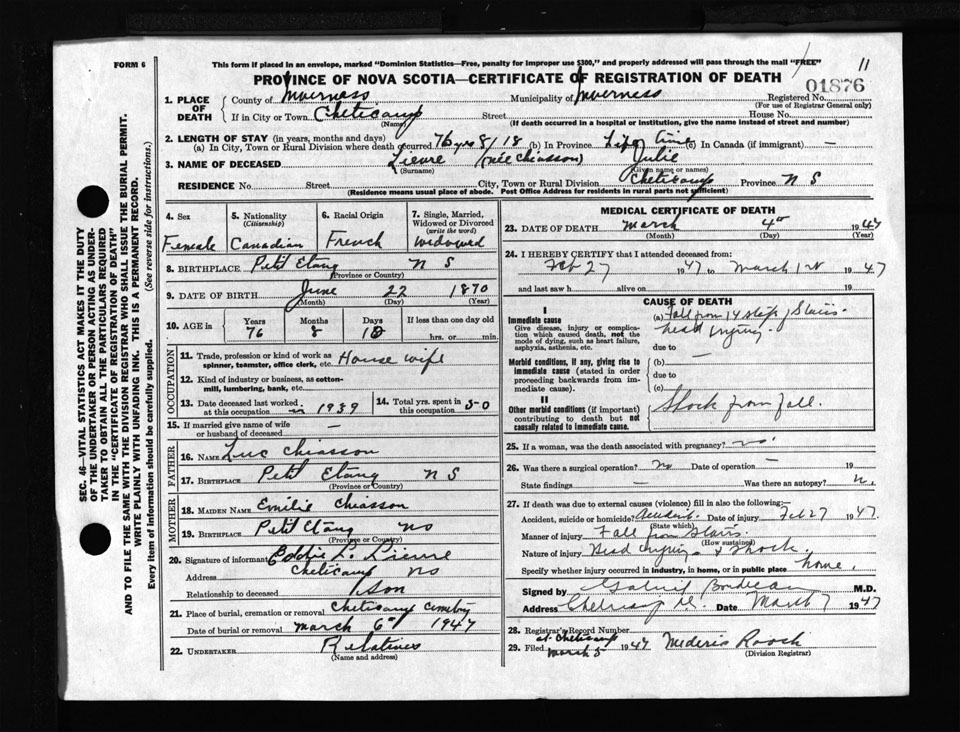 11
FORM 6
This form if placed in an envelope, marked "Dominion Statistics—Free, penalty for improper use $300," and properly addressed will pass through the mail "FREE"
PROVINCE OF NOVA SCOTIA—CERTIFICATE OF REGISTRATION OF DEATH
01876
1. PLACE OF DEATH
County of Inverness Municipality of Inverness Registered No.
(For use of Registrar General only)
If in City or Town Cheticamp Street House No.
(Name) (If death occurred in a hospital or institution, give the name instead of street and number)
2. LENGTH OF STAY (in years, months and days)
(a) In City, Town or Rural Division where death occurred 76 yrs 8/18 (b) In Province Life time (c) In Canada (if immigrant) —
3. NAME OF DECEASED Lievre (née Chiasson) Julie
(Surname) (Given name or names)
RESIDENCE No. Street City, Town or Rural Division Cheticamp Province N S
(Residence means usual place of abode. Post Office Address for residents in rural parts not sufficient)
4. Sex
Female
5. Nationality
(Citizenship)
Canadian
6. Racial Origin
French
7. Single, Married, Widowed or Divorced
(write the word)
Widowed
8. BIRTHPLACE Petit Etang N S
(Province or Country)
9. DATE OF BIRTH June 22 1870
(Month) (Day) (Year)
10. AGE in
Years Months Days If less than one day old
76 8 hrs. or min.
OCCUPATION
11. Trade, profession or kind of work as House wife
spinner, teamster, office clerk, etc.
12. Kind of industry or business, as cotton-
mill, lumbering, bank, etc.
13. Date deceased last worked at this occupation in 1939
14. Total yrs. spent in this occupation 50
15. If married give name of wife or husband of deceased —
FATHER
16. NAME Luc Chiasson
17. BIRTHPLACE Petit Etang N S
(Province or Country)
MOTHER
18. MAIDEN NAME Emilie Chiasson
19. BIRTHPLACE Petit Etang NS
(Province or Country)
20. Signature of informant Eddie L. Lievre
Address Cheticamp NS
Relationship to deceased Son
21. Place of burial, cremation or removal Cheticamp Cemetery
Date of burial or removal March 6 1947
22. UNDERTAKER Relatives
(Name and address)
MEDICAL CERTIFICATE OF DEATH
23. DATE OF DEATH March 4 1947
(Month) (Day) (Year)
24. I HEREBY CERTIFY that I attended deceased from:
Feb 27 1947 to March 1st 1947
and last saw h alive on 19
CAUSE OF DEATH
I
Immediate cause
Give disease, injury or complication which caused death, not the mode of dying, such as heart failure, asphyxia, asthenia, etc.
(a) Fall from 14 steps, Stairs.
head injury
due to —
Morbid conditions, if any, giving rise to immediate cause (stated in order proceeding backwards from immediate cause).
(b)
due to
(c)
II
Other morbid conditions (if important) contributing to death but not causally related to immediate cause.
Shock from fall.
25. If a woman, was the death associated with pregnancy? no
26. Was there a surgical operation? No Date of operation — 19
State findings — Was there an autopsy? N.
27. If death was due to external causes (violence) fill in also the following:—
Accident, suicide or homicide? Accident. Date of injury Feb 27 1947.
(State which)
Manner of injury Fall from Stairs.
(How sustained)
Nature of injury Head injury & Shock.
Specify whether injury occurred in industry, in home, or in public place home.
Signed by Gabriel Boudreau M.D.
Address Cheticamp Date March 7 1947
28. Registrar's Record Number
at Cheticamp
29. Filed March 5 1947 Mederic Roach
(Division Registrar)
SEC. 46—VITAL STATISTICS ACT MAKES IT THE DUTY
OF THE UNDERTAKER OR PERSON ACTING AS UNDER-
TAKER TO OBTAIN ALL THE PARTICULARS REQUIRED
IN THE "CERTIFICATE OF REGISTRATION OF DEATH"
AND TO FILE THE SAME WITH THE DIVISION REGISTRAR WHO SHALL ISSUE THE BURIAL PERMIT.
WRITE PLAINLY WITH UNFADING INK. THIS IS A PERMANENT RECORD.
Every item of information should be carefully supplied. (See reverse side for instructions.)